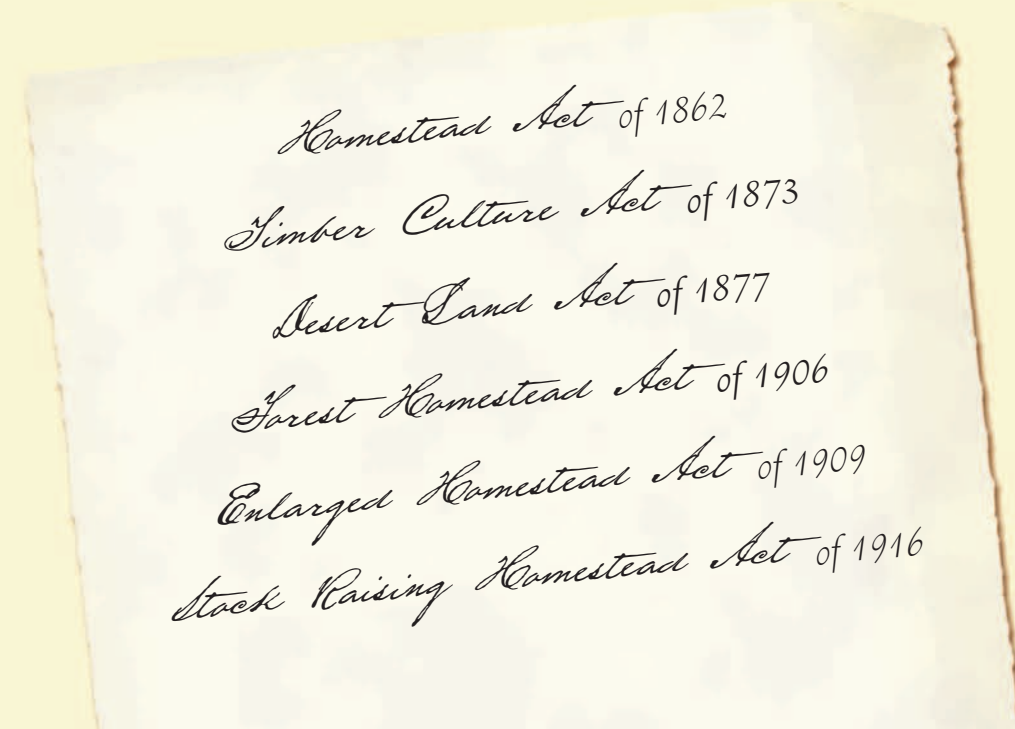 Homestead Act of 1862
Timber Culture Act of 1873
Desert Land Act of 1877
Forest Homestead Act of 1906
Enlarged Homestead Act of 1909
Stock Raising Homestead Act of 1916